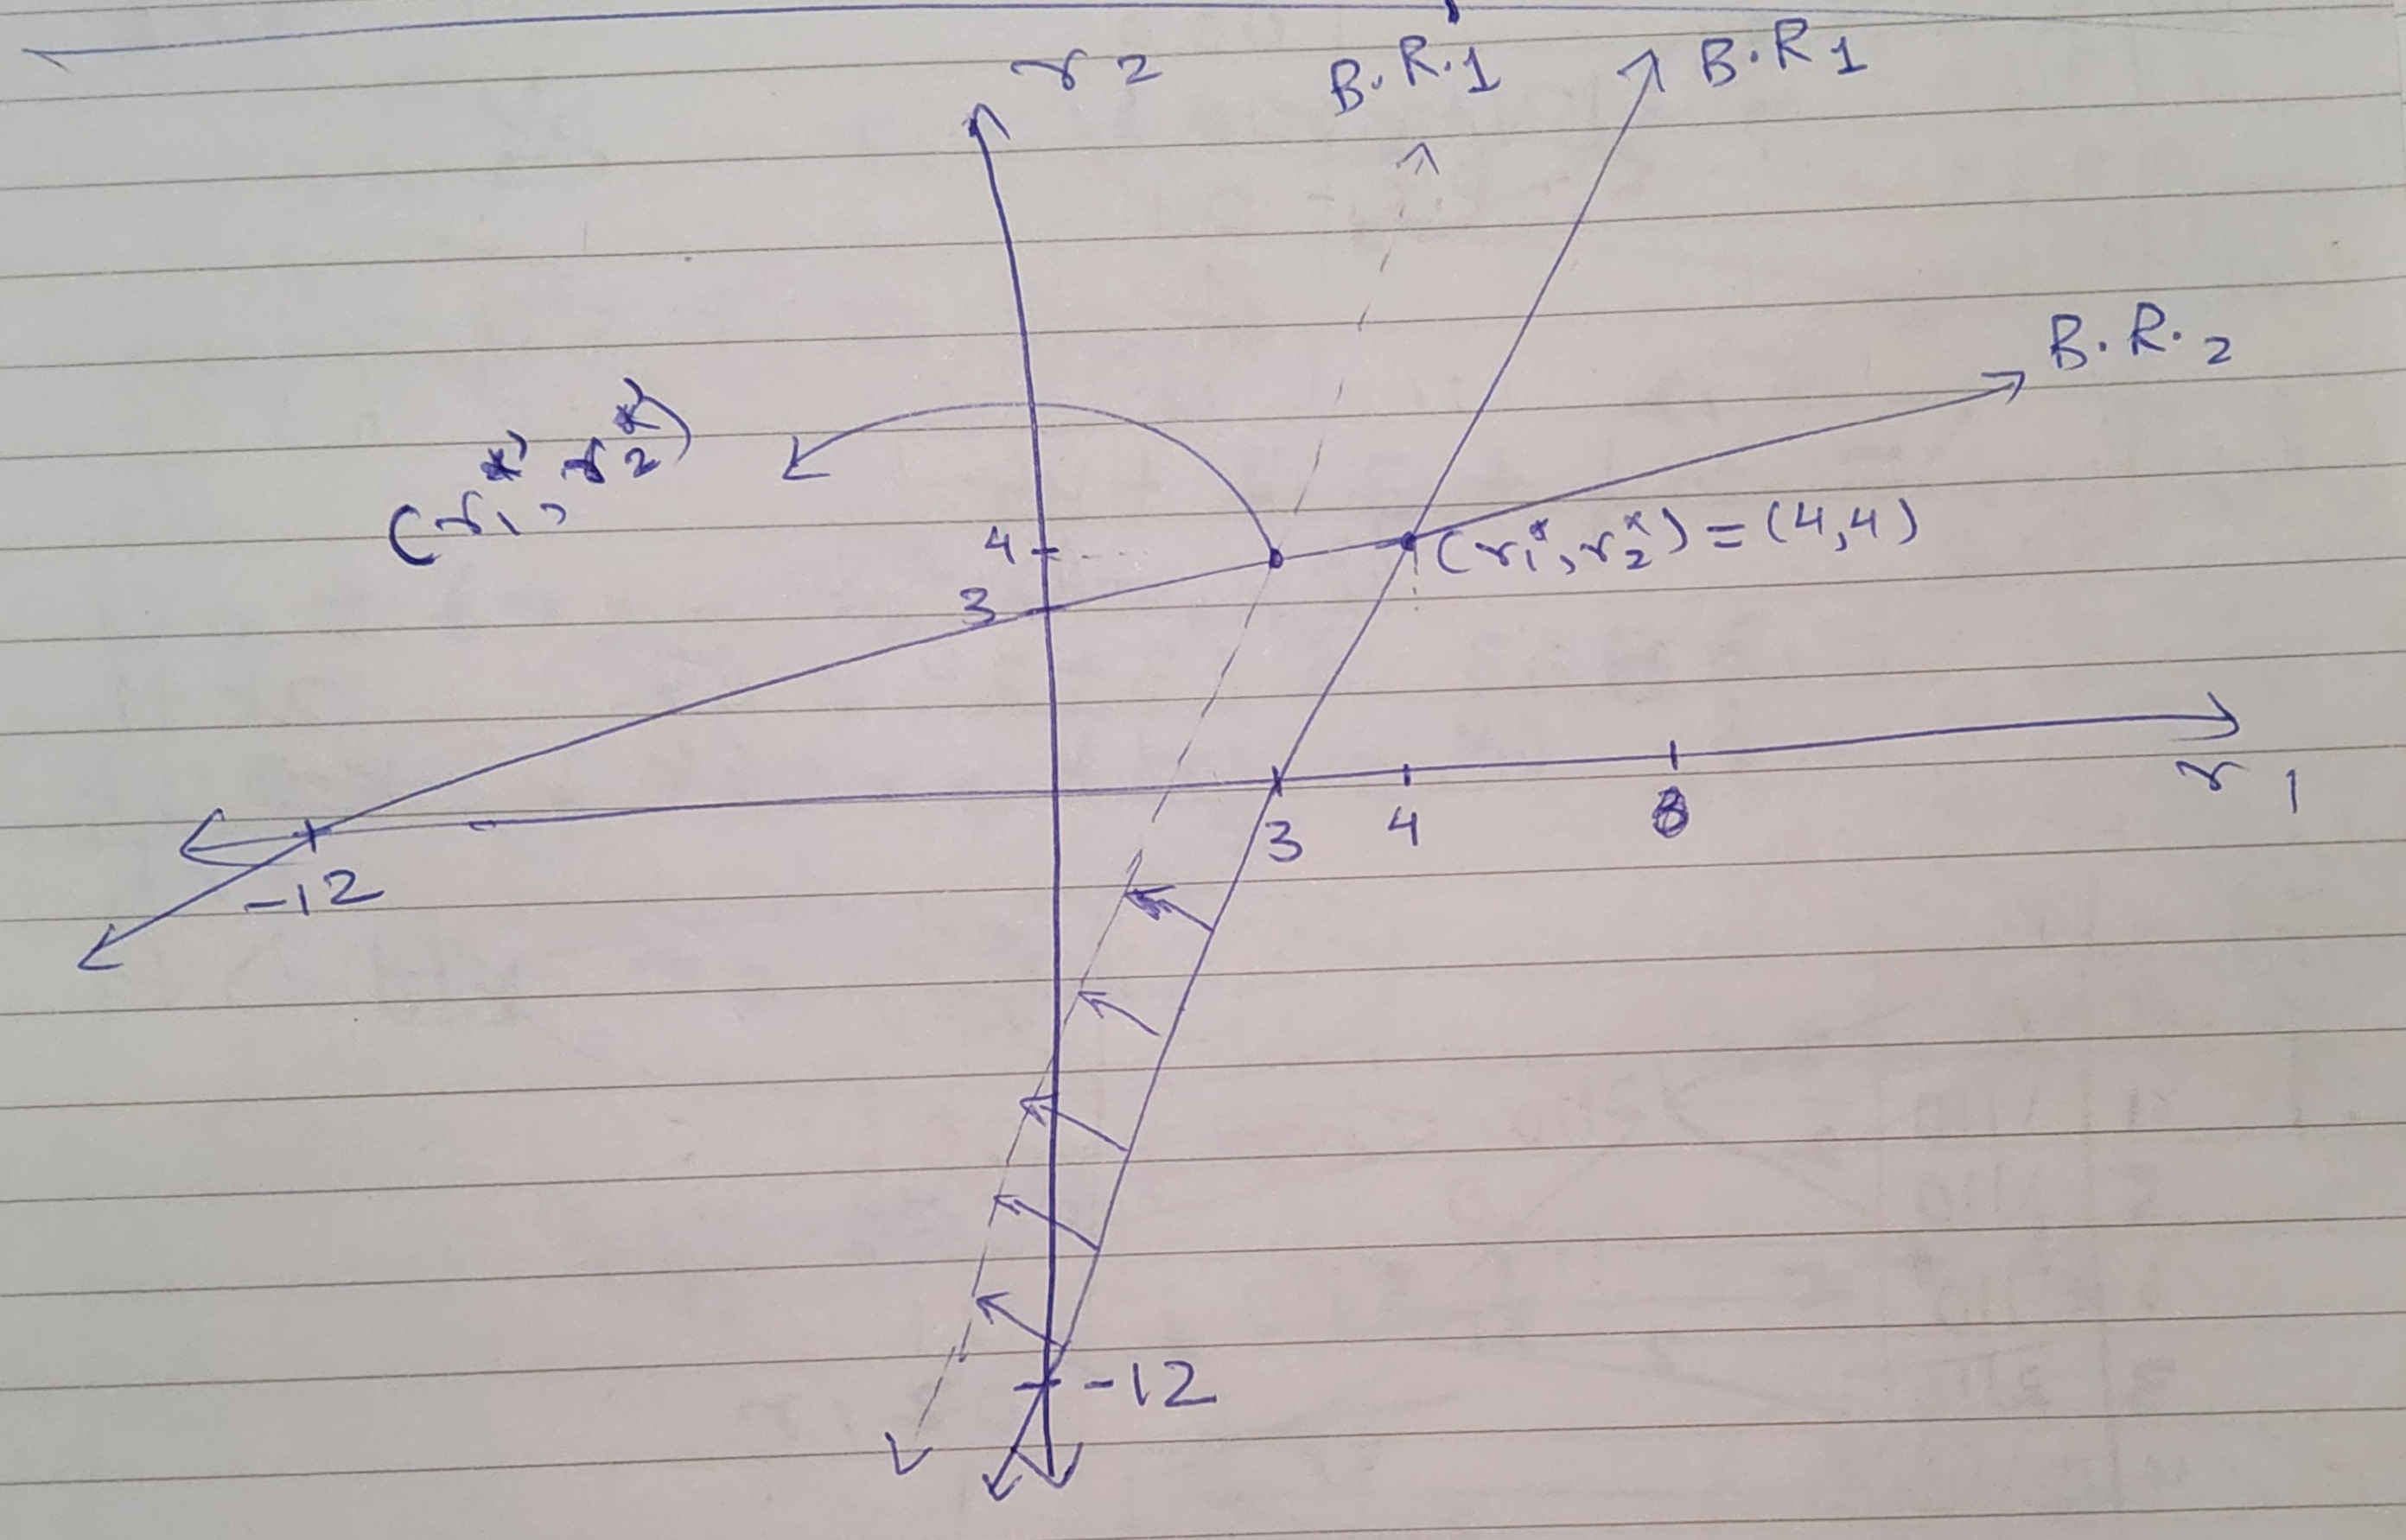 r2
B.R.1
B.R1
B.R.2
(r1*', r2*')
4
(r1*, r2*) = (4,4)
3
r1
3
4
8
-12
-12